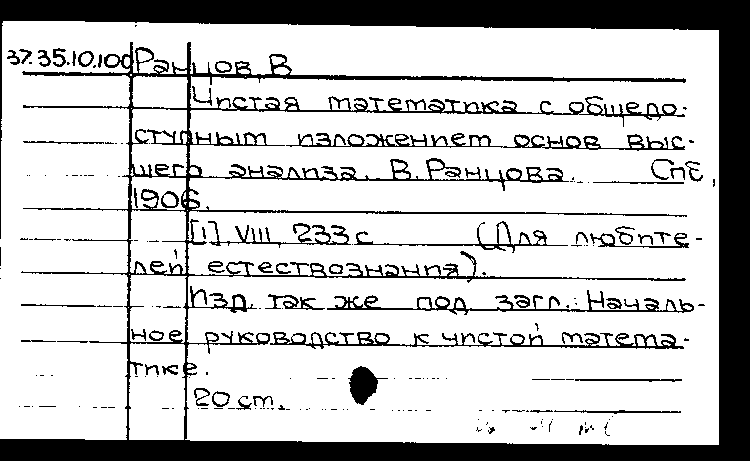 37.35.10.100 Ранцов, В
Чистая математика с общедо-
ступным изложением основ выс-
шего анализа. В. Ранцова. Спб,
1906.
[1], VIII, 233 с (Для любите-
лей естествознания).
Изд. так же под загл.: Началь-
ное руководство к чистой матема-
тике.
20 ст.